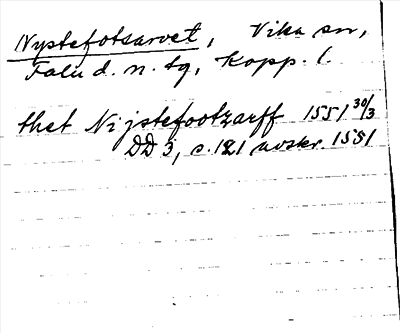 Nystefotsarvet, Vika sn,
Falu d. n. tg, Kopp. l.
thet Nijstefootzarff 1551 30/3
DD 3, s. 121 avskr. 1551